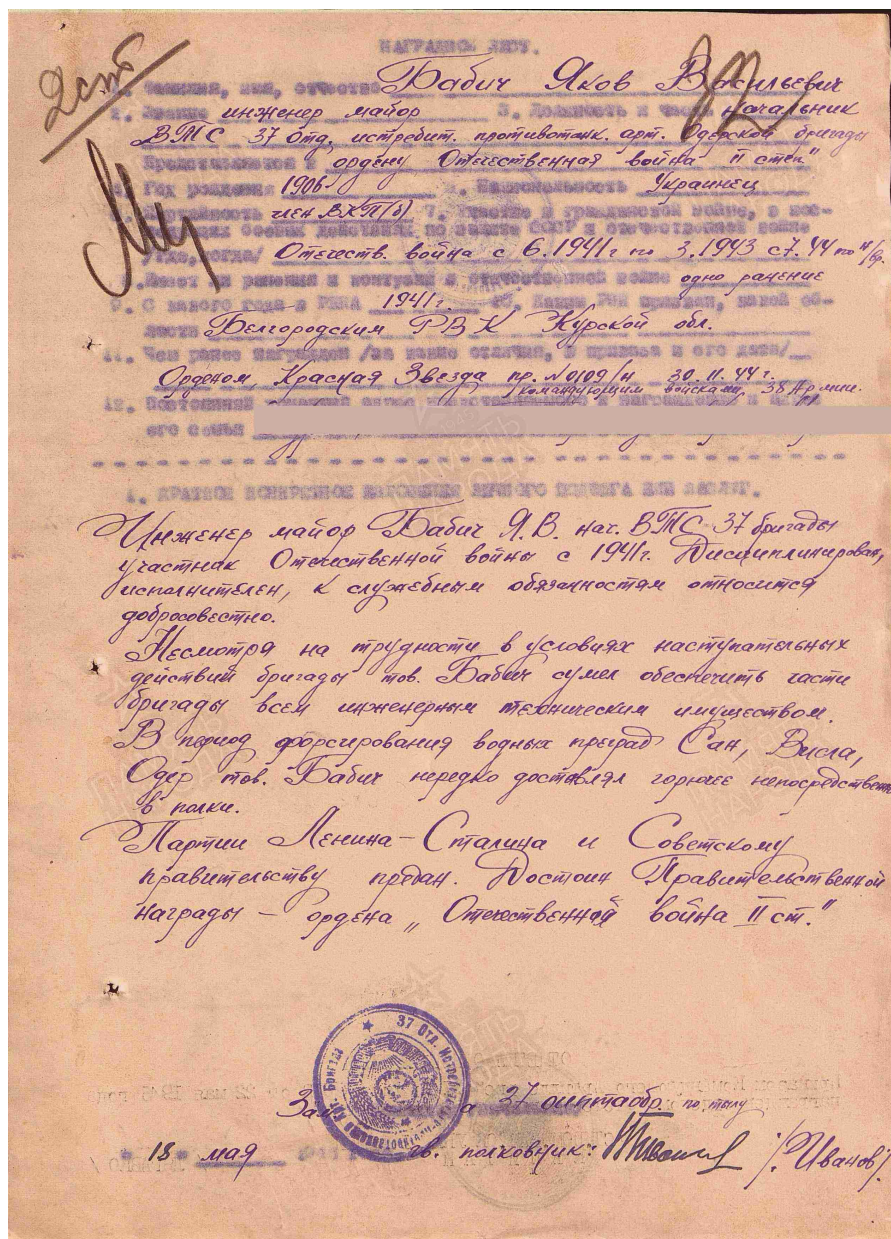 2 ст
НАГРАДНОЙ ЛИСТ.
1. Фамилия, имя, отчество Бабич Яков Васильевич
2. Звание инженер майор 3. Должность и часть начальник
ВТС 37 отд. истребит. противотанк. арт. Одерской бригады
Представляется к ордену Отечественная война II степ"
Год рождения 1906 Национальность Украинец
Партийность член ВКП(б) 7. Участие в гражданской войне, в пос-
боевых действиях по защите СССР и отечественной войне
/где, когда/ Отечеств. война с 6.1941г по 3.1943 с 7.44 по н/вр.
Имеет ли ранения и контузии в отечественной войне одно ранение
9. С какого года в РККА 1941г. 10. Каким РВК призван, какой об-
ласти Белгородским РВК Курской обл.
11. Чем ранее награжден /за какие отличия, № приказа и его дата/
Орденом Красная Звезда пр. №0109/н 30.11.44г.
командующим войсками 38 Армии.
12. Постоянный домашний адрес представляемого к награждению и адрес
его семьи
1. КРАТКОЕ КОНКРЕТНОЕ ИЗЛОЖЕНИЕ ЛИЧНОГО ПОДВИГА ИЛИ ЗАСЛУГ.
Инженер майор Бабич Я.В. нач. ВТС 37 бригады
участник Отечественной войны с 1941г. Дисциплинирован,
исполнителен, к служебным обязанностям относится
добросовестно.
Несмотря на трудности в условиях наступательных
действий бригады тов. Бабич сумел обеспечить части
бригады всем инженерным техническим имуществом.
В период форсирования водных преград Сан, Висла,
Одер тов. Бабич нередко доставлял горючее непосредственно
в полки.
Партии Ленина-Сталина и Советскому
правительству предан. Достоин Правительственной
награды - ордена „Отечественной война II ст."
37 Отд. Истребительно-противотанковая Арт. Бригада
Зам 37 оиптабр по тылу
18 мая гв. полковник: /Иванов/.